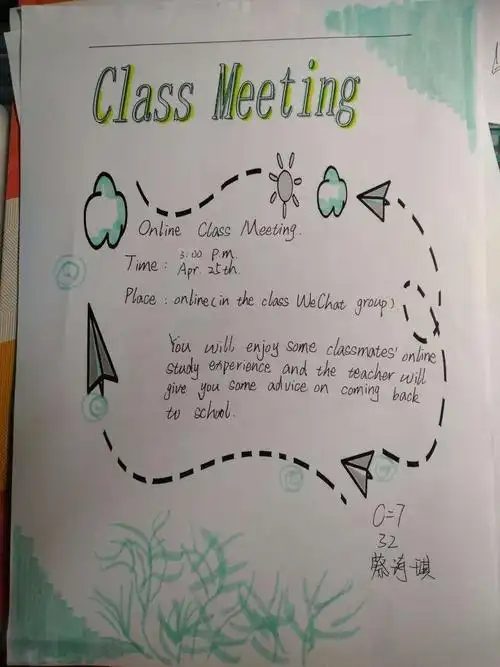 Class Meeting
Online Class Meeting.
Time : 3:00 P.m.
Apr. 25th.
Place : online(in the class WeChat group)
You will enjoy some classmates' online
study experience and the teacher will
give you some advice on coming back
to school.
C=7
32
蔡涛琪